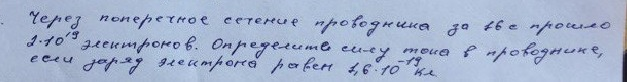 Через поперечное сечение проводника за 16 с прошло
2·10¹⁹ электронов. Определить силу тока в проводнике,
если заряд электрона равен 1,6·10⁻¹⁹ Кл